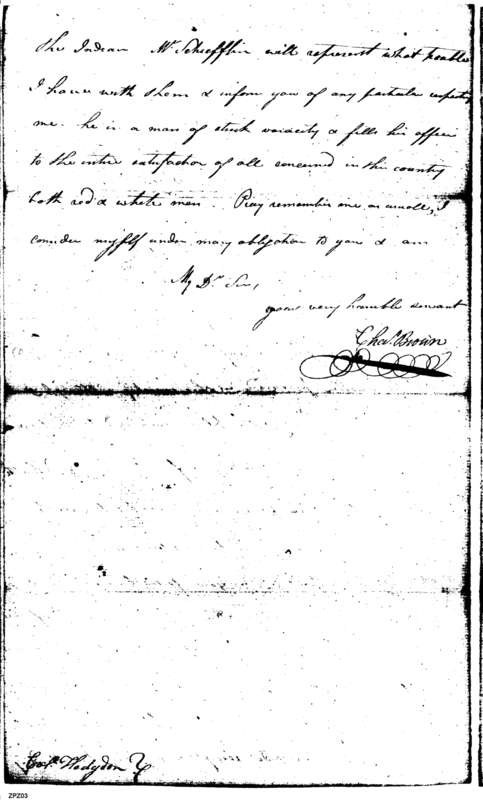 the Indian Mr Schiefflin will represent what trouble
I have with them & inform you of any particular respecting
me. he is a man of strick voracity & fills his office
to the intire satisfaction of all concerned in this country
both red & white men. Pray remember me as usuall, I
consider myself under many obligation to you & am
My Dr Sir,
your very humble servant
Chas. Brown
Colo. Hodgdon
ZPZ03